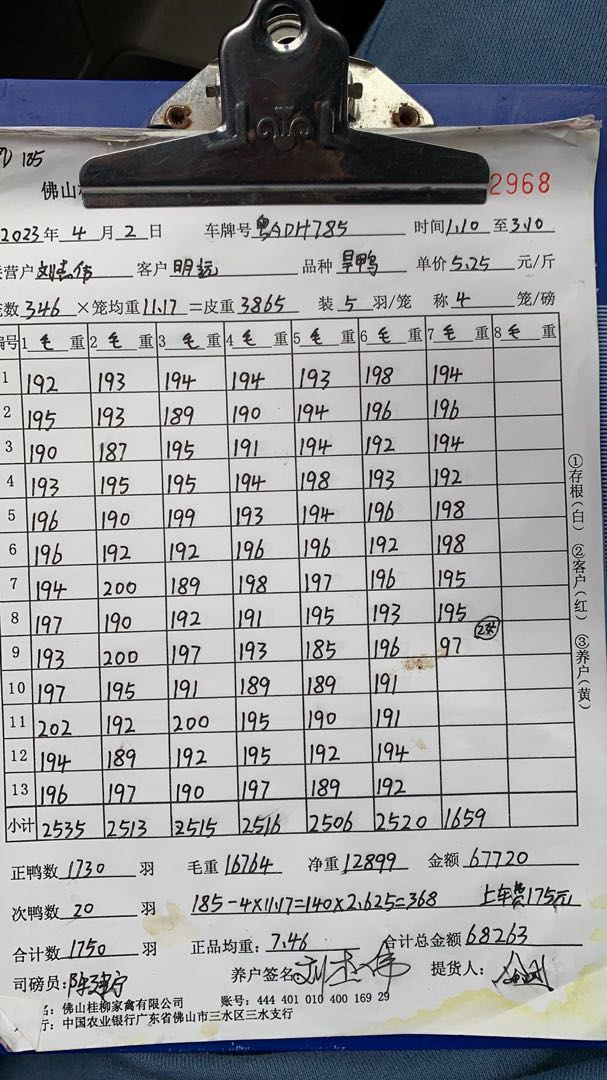 135
佛山桂
2968
2023年4月2日 车牌号粤ADH785 时间1.10至3.10
营户刘志伟 客户明 品种旱鸭 单价5.25元/斤
数346×笼均重11.17=皮重3865 装5羽/笼 称4笼/磅
编号 1毛重 2毛重 3毛重 4毛重 5毛重 6毛重 7毛重 8毛重
1 192 193 194 194 193 198 194
2 195 193 189 190 194 196 196
3 190 187 195 191 194 192 194
4 193 195 195 194 198 193 192
5 196 190 199 193 194 196 198
6 196 192 192 196 196 192 198
7 194 200 189 198 197 196 195
8 197 190 192 191 195 193 195
9 193 200 197 193 185 196 97
10 197 195 191 189 189 191
11 202 192 200 195 190 191
12 194 189 192 195 192 194
13 196 197 190 197 189 192
小计 2535 2513 2515 2516 2506 2520 1659
①存根(白) ②客户(红) ③养户(黄)
正鸭数1730羽 毛重16764 净重12899 金额67720
次鸭数20羽 185-4×11.17=140×2.625=368 上车费175元
合计数1750羽 正品均重:7.46 合计总金额68263
司磅员:陈建宁 养户签名:刘志伟 提货人:
名:佛山桂柳家禽有限公司 账号:444 401 010 400 169 29
行:中国农业银行广东省佛山市三水区三水支行